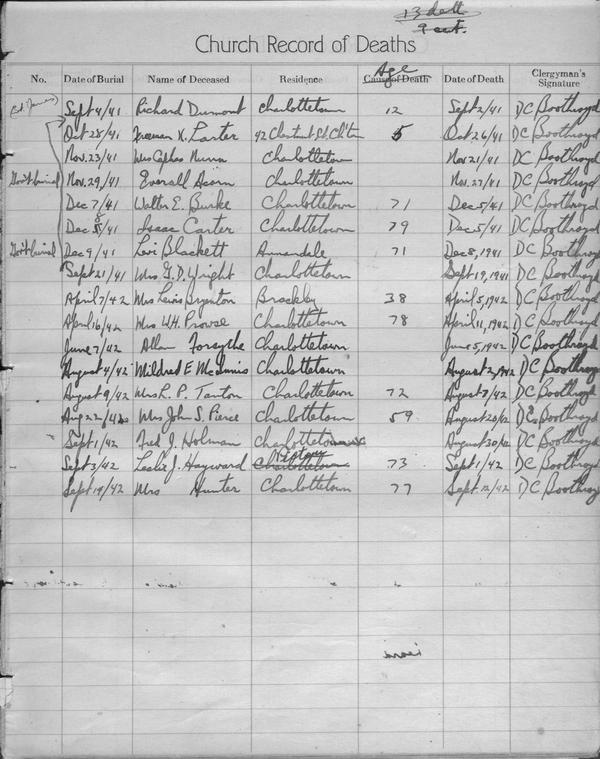 13
9
Church Record of Deaths
Age
No. Date of Burial Name of Deceased Residence Cause of Death Date of Death Clergyman's Signature
(St. James) Sept 4/41 Richard Dumont Charlottetown 12 Sept 2/41 DC Boothroyd
Oct 28/41 Freeman K. Larter 42 Chestnut St Ch'town 5 Oct 26/41 DC Boothroyd
Nov. 23/41 Mrs Cephas Nunn Charlottetown Nov 21/41 DC Boothroyd
Gov't burial Nov. 29/41 Everall Acorn Charlottetown Nov. 27/41 DC Boothroyd
Dec 7/41 Walter E. Burke Charlottetown 71 Dec 5/41 DC Boothroyd
Dec 8/41 Isaac Carter Charlottetown 79 Dec 5/41 DC Boothroyd
Gov't burial Dec 9/41 Levi Blackett Annandale 71 Dec 8, 1941 DC Boothroyd
Sept 21/41 Mrs G. D. Wright Charlottetown Sept 19, 1941 DC Boothroyd
April 7/42 Mrs Lewis Brynton Brackley 38 April 5, 1942 DC Boothroyd
April 16/42 Mrs W.H. Prowse Charlottetown 78 April 11, 1942 DC Boothroyd
June 7/42 Allan Forsythe Charlottetown June 5, 1942 DC Boothroyd
August 4/42 Mildred E McInnis Charlottetown August 2, 1942 DC Boothroyd
August 9/42 Mrs L. P. Tanton Charlottetown 72 August 7/42 DC Boothroyd
Aug 22/42 Mrs John S. Pierce Charlottetown 59 August 20/42 DC Boothroyd
Sept 1/42 Fred J. Holman Charlottetown August 30/42 DC Boothroyd
Sept 3/42 Leslie J. Hayward Charlottetown 73 Sept 1/42 DC Boothroyd
Sept 14/42 Mrs Hunter Charlottetown 77 Sept 12/42 DC Boothroyd